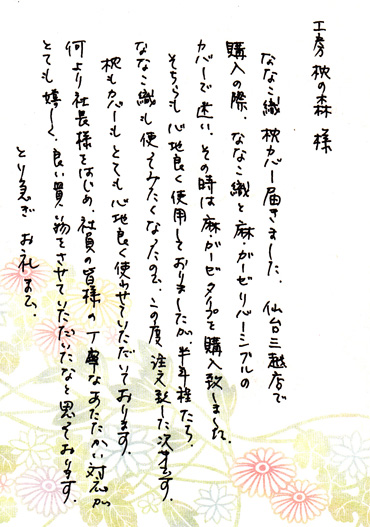 工房 枕の森 様
ななこ織 枕カバー届きました。仙台三越店で
購入の際、ななこ織と麻・ガーゼリバーシブルの
カバーで迷い、その時は麻・ガーゼタイプを購入致しました。
そちらも心地良く使用しておりましたが半年経たち、
ななこ織も使ってみたくなったので、この度注文致した次第です。
枕もカバーもとても心地良く使わせていただいております。
何より社長様をはじめ、社員の皆様の丁寧なあたたかい対応が
とても嬉しく、良い買い物をさせていただいたなと思っております。
とり急ぎ お礼まで。